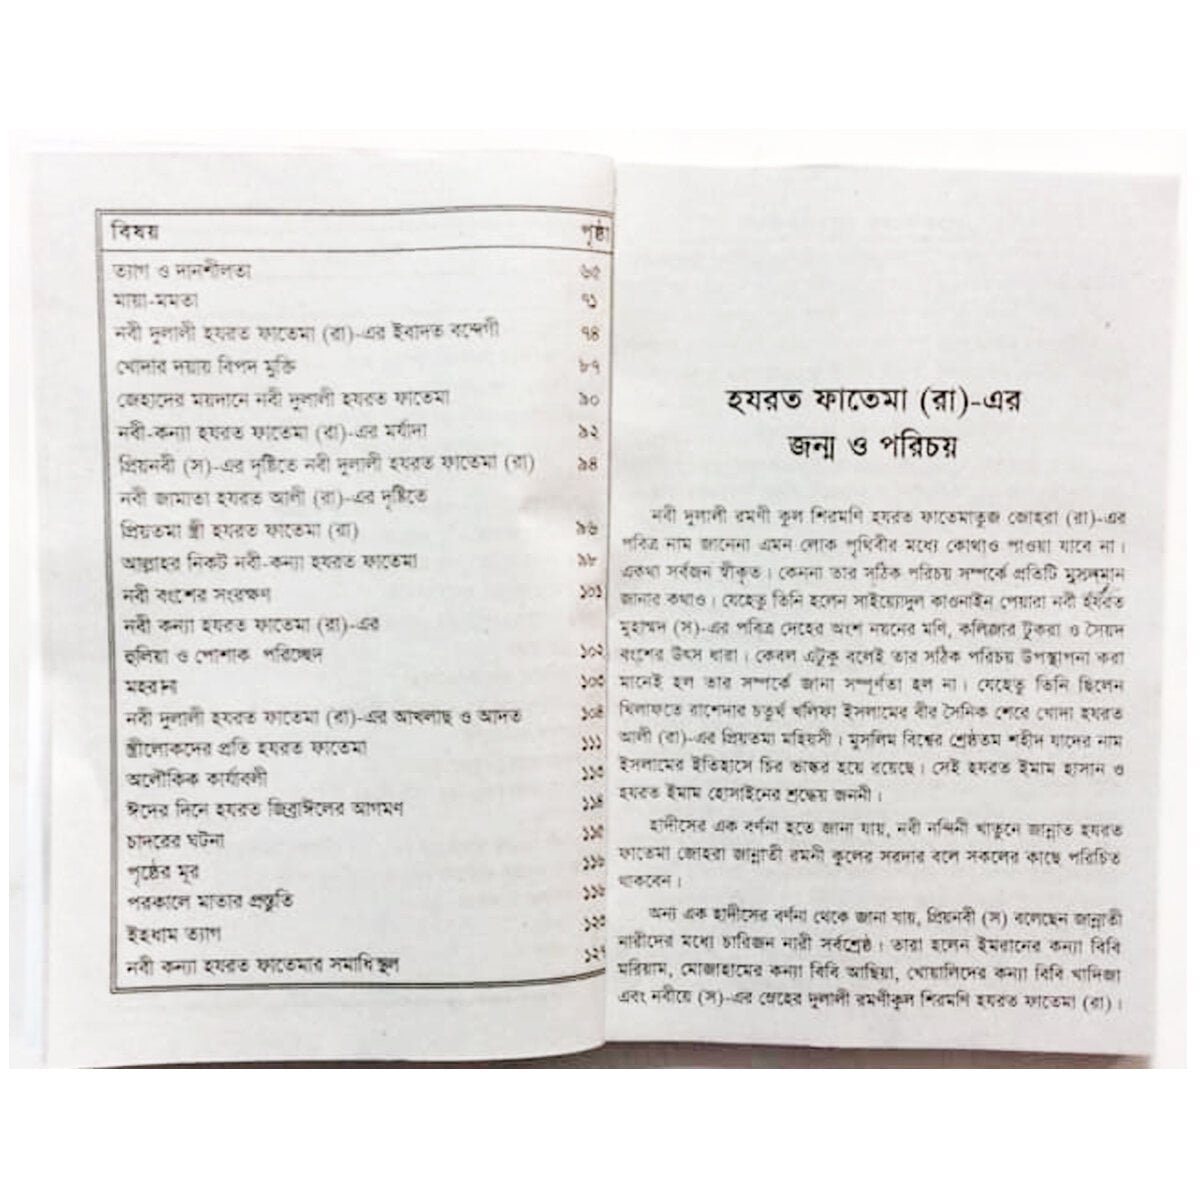 বিষয় পৃষ্ঠা
ত্যাগ ও দানশীলতা ৬৫
মায়া-মমতা ৭১
নবী দুলালী হযরত ফাতেমা (রা)-এর ইবাদত বন্দেগী ৭৪
খোদার দয়ায় বিপদ মুক্তি ৮৭
জেহাদের ময়দানে নবী দুলালী হযরত ফাতেমা ৯০
নবী-কন্যা হযরত ফাতেমা (রা)-এর মর্যাদা ৯২
প্রিয়নবী (স)-এর দৃষ্টিতে নবী দুলালী হযরত ফাতেমা (রা) ৯৪
নবী জামাতা হযরত আলী (রা)-এর দৃষ্টিতে
প্রিয়তমা স্ত্রী হযরত ফাতেমা (রা) ৯৬
আল্লাহর নিকট নবী-কন্যা হযরত ফাতেমা ৯৮
নবী বংশের সংরক্ষণ ১০১
নবী কন্যা হযরত ফাতেমা (রা)-এর
হুলিয়া ও পোশাক পরিচ্ছেদ ১০২
মহব্বত ১০৩
নবী দুলালী হযরত ফাতেমা (রা)-এর আখলাছ ও আদত ১০৪
স্ত্রীলোকদের প্রতি হযরত ফাতেমা ১১১
অলৌকিক কার্যাবলী ১১৩
ঈদের দিনে হযরত জিব্রাঈলের আগমণ ১১৪
চাদরের ঘটনা ১১৫
পৃষ্ঠের মূর
পরকালে মাতার প্রস্তুতি
ইহধাম ত্যাগ ১২৩
নবী কন্যা হযরত ফাতেমার সমাধি স্থল ১২৭
হযরত ফাতেমা (রা)-এর
জন্ম ও পরিচয়
নবী দুলালী রমণী কুল শিরমণি হযরত ফাতেমাতুজ জোহরা (রা)-এর
পবিত্র নাম জানেনা এমন লোক পৃথিবীর মধ্যে কোথাও পাওয়া যাবে না।
একথা সর্বজন স্বীকৃত। কেননা তার সঠিক পরিচয় সম্পর্কে প্রতিটি মুসলমান
জানার কথাও। যেহেতু তিনি হলেন সাইয়্যেদুল কাওনাইন পেয়ারা নবী হযরত
মুহাম্মদ (স)-এর পবিত্র দেহের অংশ নয়নের মণি, কলিজার টুকরা ও সৈয়দ
বংশের উৎস ধারা। কেবল এটুকু বলেই তার সঠিক পরিচয় উপস্থাপনা করা
মানেই হল তার সম্পর্কে জানা সম্পূর্ণতা হল না। যেহেতু তিনি ছিলেন
খিলাফতে রাশেদার চতুর্থ খলিফা ইসলামের বীর সৈনিক শেরে খোদা হযরত
আলী (রা)-এর প্রিয়তমা মহিয়সী। মুসলিম বিশ্বের শ্রেষ্ঠতম শহীদ যাদের নাম
ইসলামের ইতিহাসে চির ভাস্কর হয়ে রয়েছে। সেই হযরত ইমাম হাসান ও
হযরত ইমাম হোসাইনের শ্রদ্ধেয় জননী।
হাদীসের এক বর্ণনা হতে জানা যায়, নবী নন্দিনী খাতুনে জান্নাত হযরত
ফাতেমা জোহরা জান্নাতী রমনী কুলের সরদার বলে সকলের কাছে পরিচিত
থাকবেন।
অন্য এক হাদীসের বর্ণনা থেকে জানা যায়, প্রিয়নবী (স) বলেছেন জান্নাতী
নারীদের মধ্যে চারিজন নারী সর্বশ্রেষ্ঠ। তারা হলেন ইমরানের কন্যা বিবি
মরিয়াম, মোজাহামের কন্যা বিবি আছিয়া, খোয়ালিদের কন্যা বিবি খাদিজা
এবং নবীয়ে (স)-এর স্নেহের দুলালী রমণীকুল শিরমণি হযরত ফাতেমা (রা)।